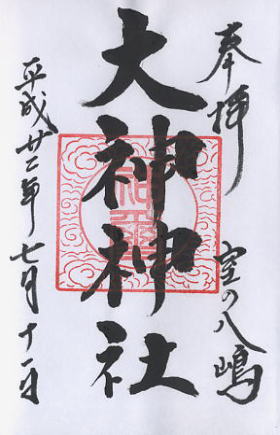 奉拝
室の八嶋
大神神社
平成廿二年七月十一日